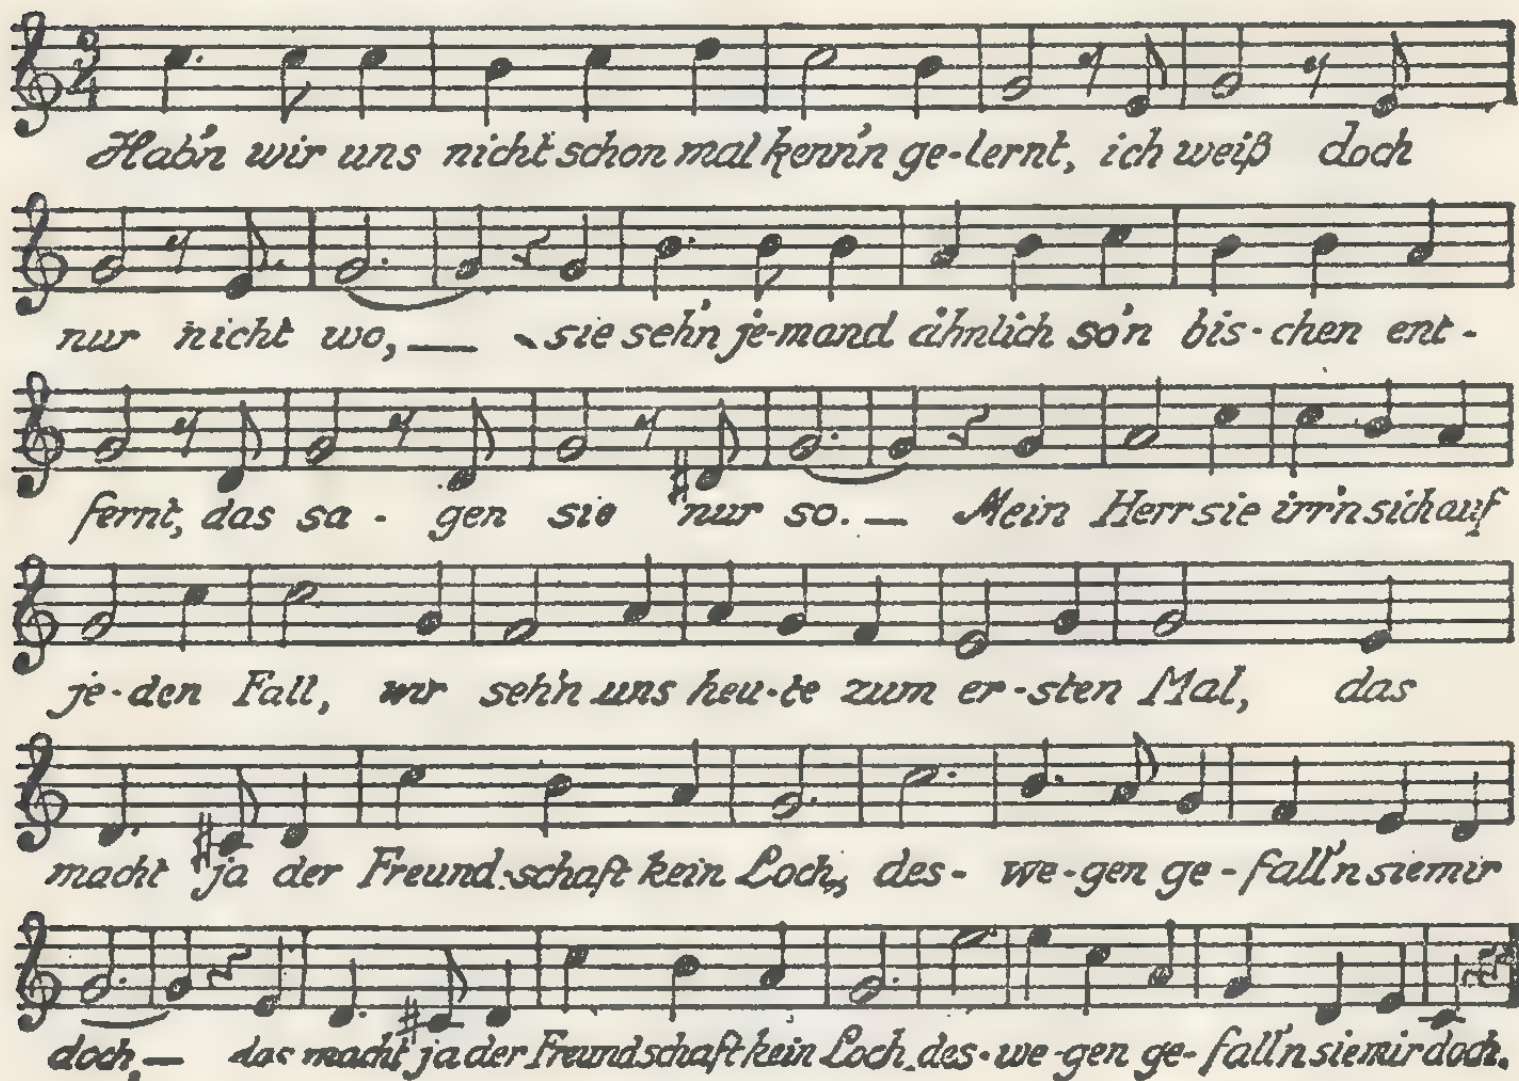 Hab'n wir uns nicht schon mal kenn'n ge-lernt, ich weiß doch
nur nicht wo,— sie seh'n je-mand ähnlich so'n bis-chen ent-
fernt, das sa-gen sie nur so.— Mein Herr sie irr'n sich auf
je-den Fall, wir seh'n uns heu-te zum er-sten Mal, das
macht ja der Freund-schaft kein Loch, des-we-gen ge-fall'n sie mir
doch,— das macht ja der Freundschaft kein Loch, des-we-gen ge-fall'n sie mir doch.